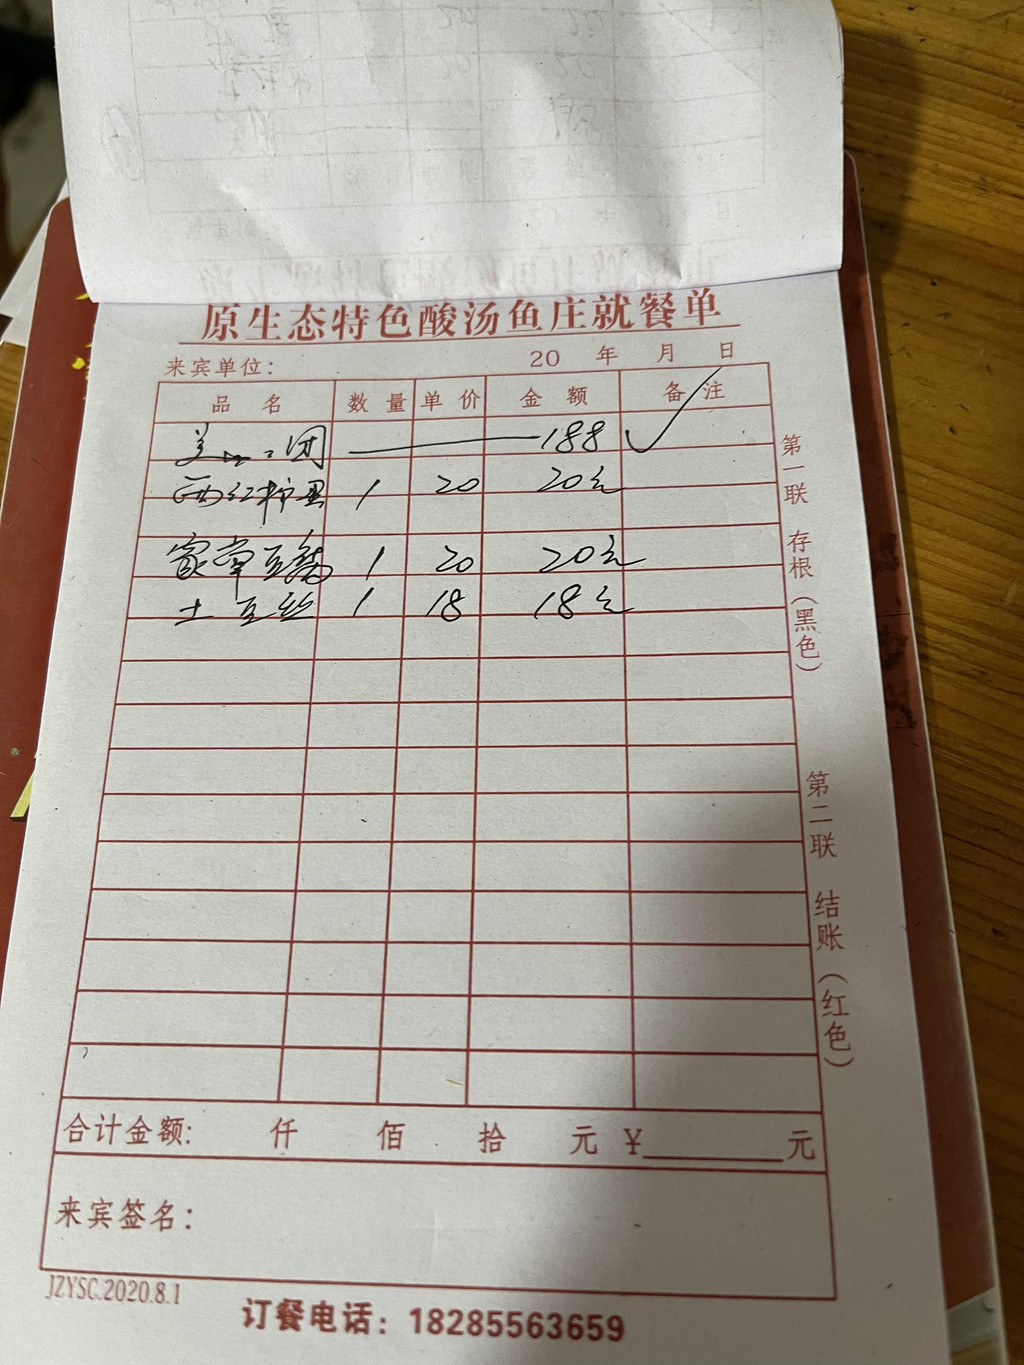 原生态特色酸汤鱼庄就餐单
来宾单位： 20 年 月 日
品名 数量 单价 金额 备注
美 团 188 ✓
西红柿 1 20 20元
家常豆腐 1 20 20元
土豆丝 1 18 18元
第一联 存根（黑色）
第二联 结账（红色）
合计金额： 仟 佰 拾 元 ¥ 元
来宾签名：
JZYSC.2020.8.1
订餐电话：18285563659